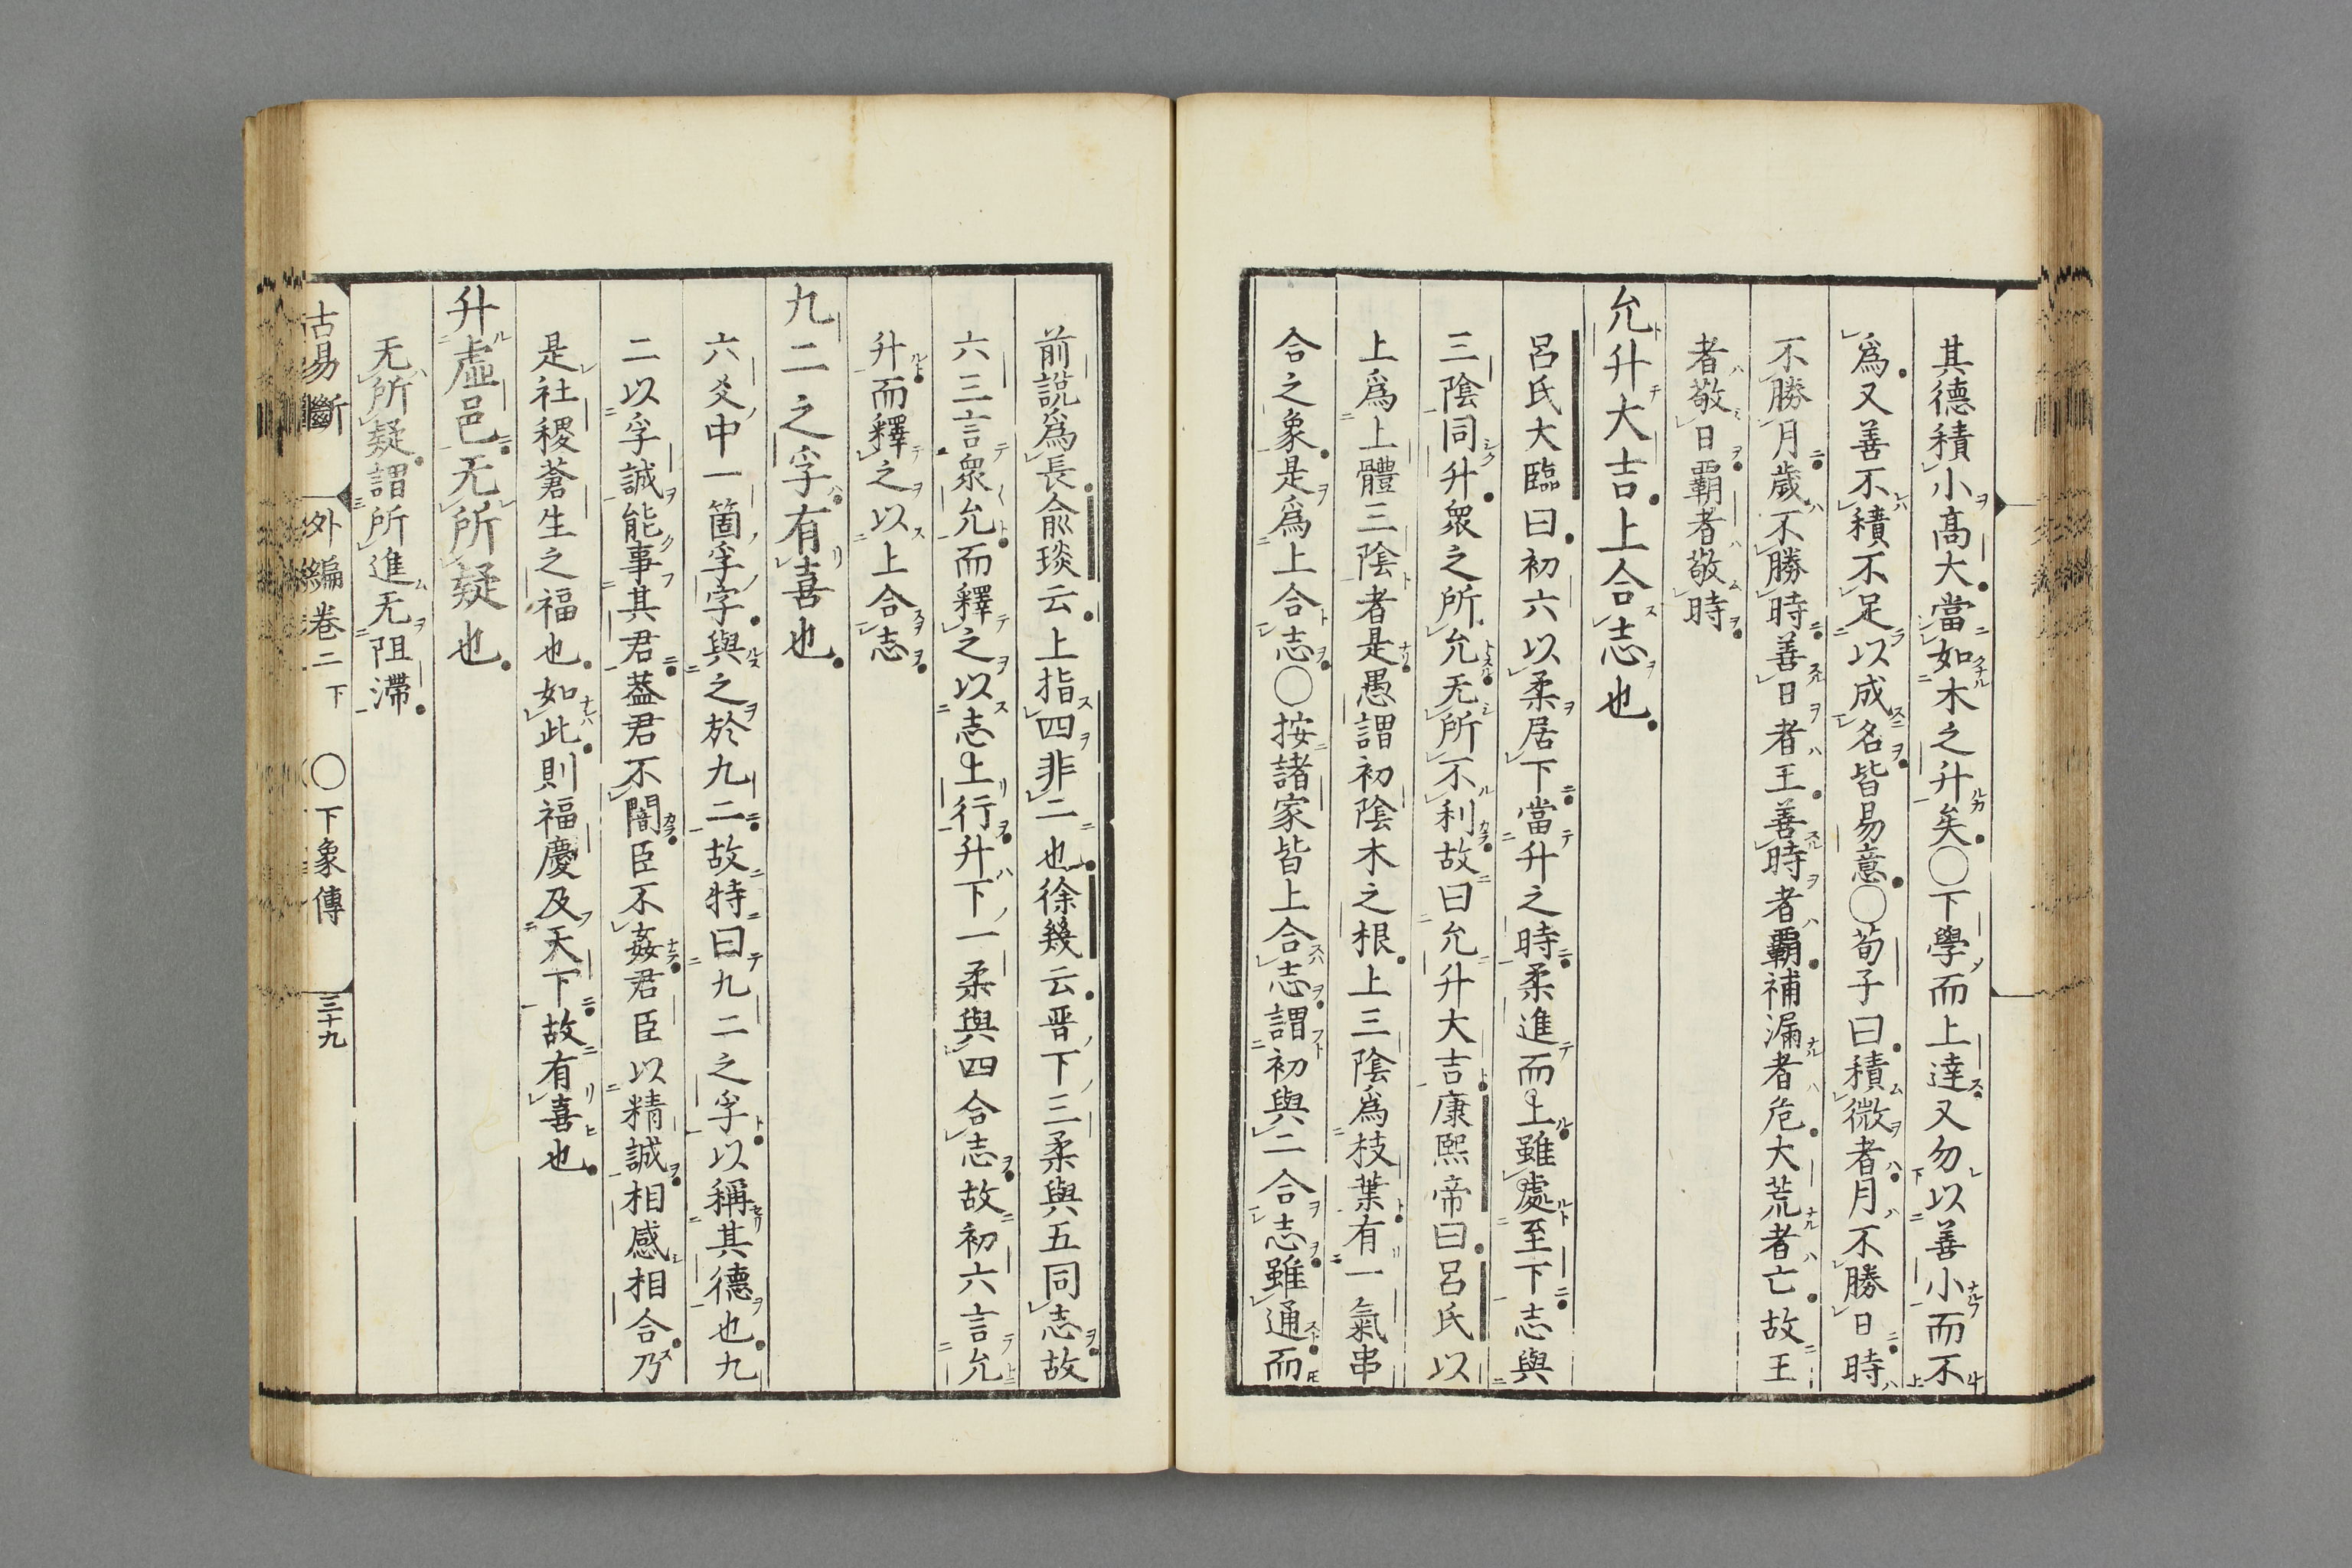 其德積小高大當如木之升矣〇下學而上達又勿以善小而不
爲又善不積不足以成名皆易意〇荀子曰積微者月不勝日時
不勝月歲不勝時善日者王善時者霸補漏者危大荒者亡故王
者敬日霸者敬時
允升大吉上合志也
呂氏大臨曰初六以柔居下當升之時柔進而上雖處至下志與
三陰同升衆之所允无所不利故曰允升大吉康熙帝曰呂氏以
上爲上體三陰者是愚謂初陰木之根上三陰爲枝葉有一氣串
合之象是爲上合志〇按諸家皆上合志謂初與二合志雖通而
前說爲長兪琰云上指四非二也徐幾云晋下三柔與五同志故
六三言衆允而釋之以志上行升下一柔與四合志故初六言允
升而釋之以上合志
九二之孚有喜也
六爻中一箇孚字與之於九二故特曰九二之孚以稱其德也九
二以孚誠能事其君葢君不闇臣不姦君臣以精誠相感相合乃
是社稷蒼生之福也如此則福慶及天下故有喜也
升虛邑无所疑也
无所疑謂所進无阻滯
古易斷 外編卷二下 〇下象傳 三十九